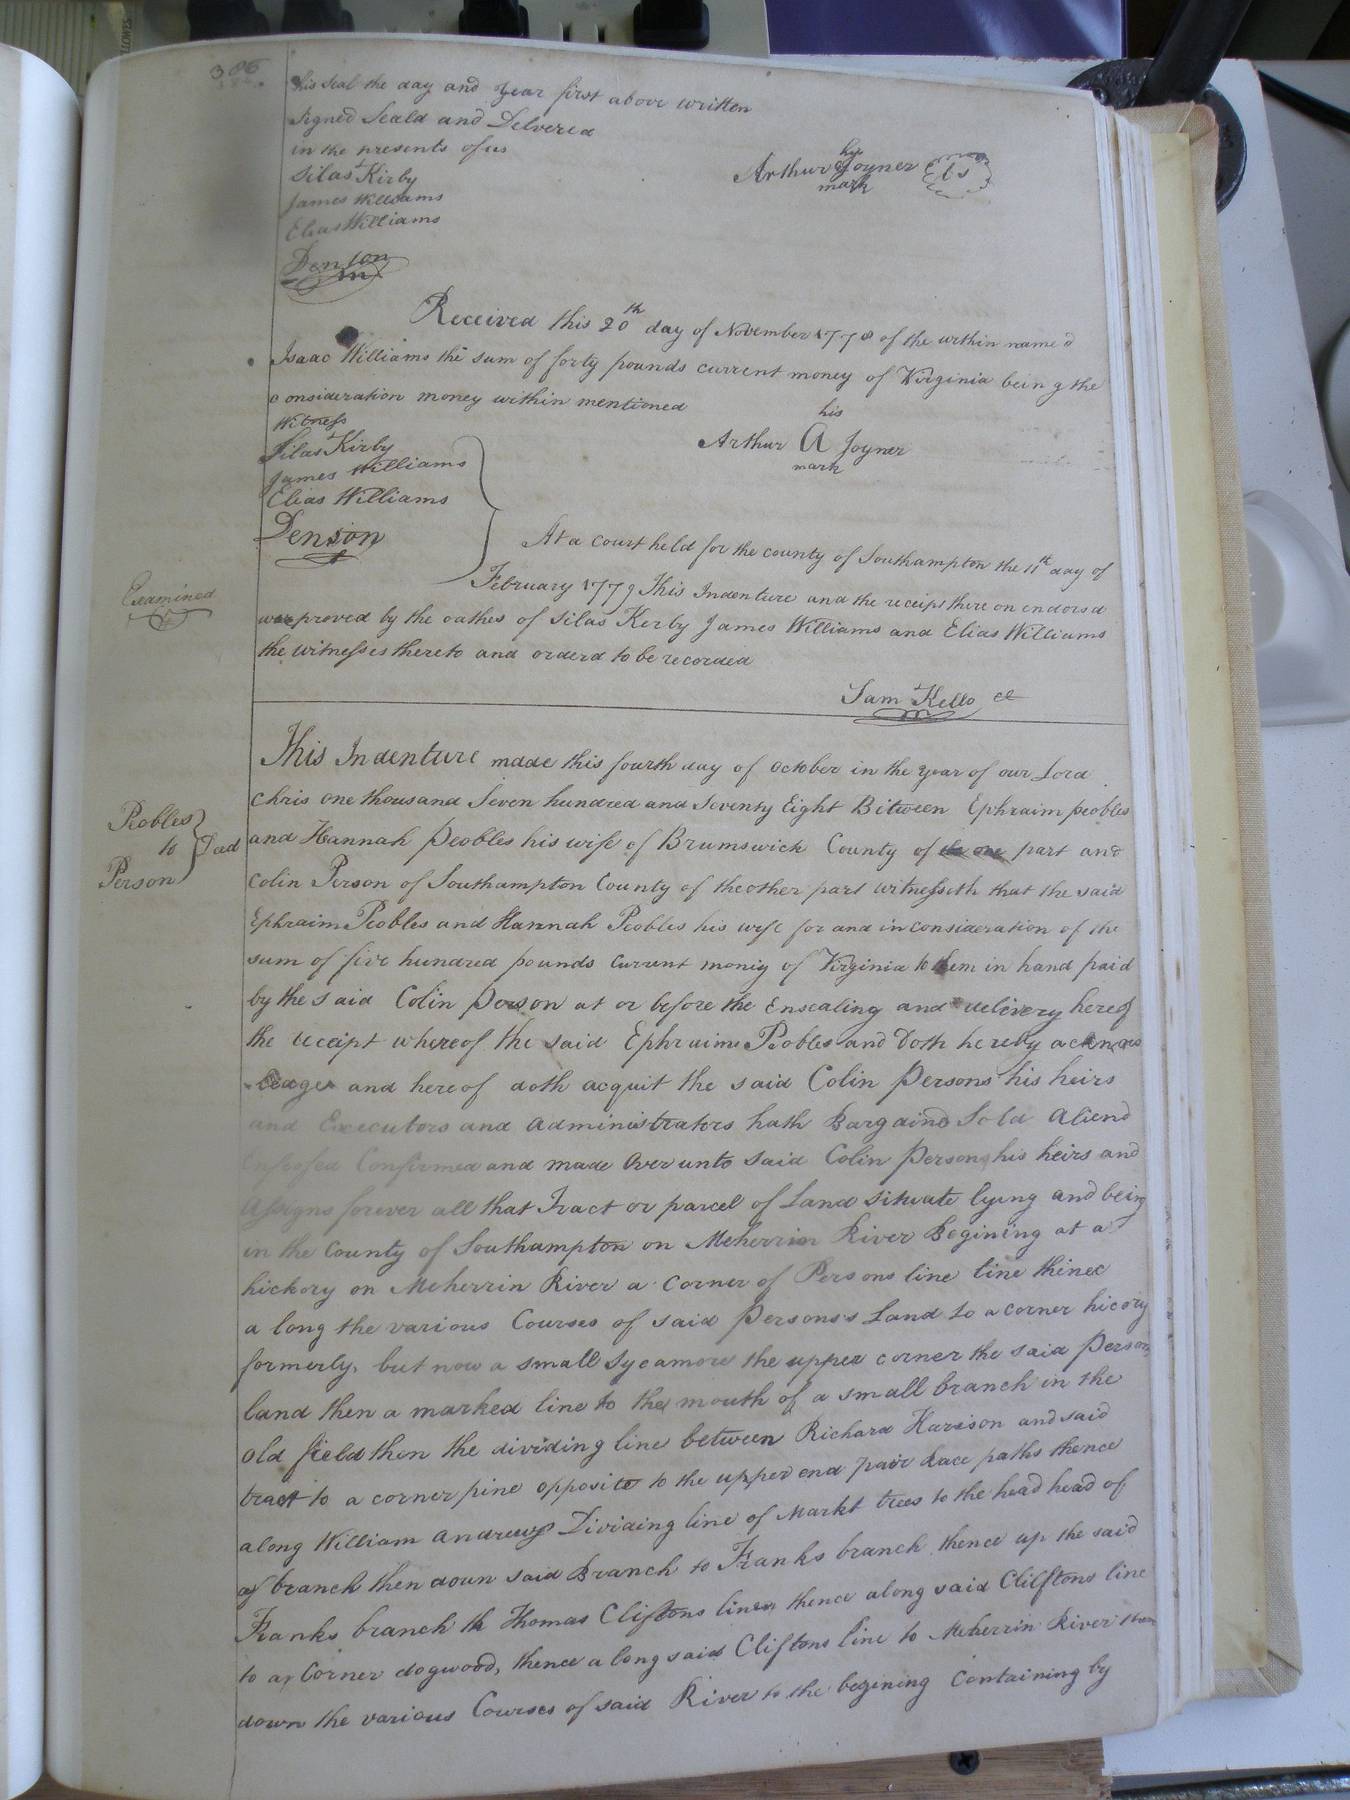 386
his seal the day and year first above written
Signed Seald and Delvered
in the presents of us
Silas Kirby
James Williams
Elias Williams
Denson
his
Arthur Joyner
mark
Ls
Received this 20th day of November 1778 of the within name'd
Isaac Williams the sum of forty pounds current money of Virginia being the
consideration money within mentioned
Witness
Silas Kirby
James Williams
Elias Williams
Denson
his
Arthur A Joyner
mark
At a court held for the county of Southampton the 11th day of
February 1779 This Indenture and the receipt there on endorsd
Examined
was proved by the oathes of Silas Kerby James Williams and Elias Williams
the witnesses thereto and orderd to be recorded
Sam Kello cl
This Indenture made this fourth day of october in the year of our Lord
Chris one thousand Seven hundred and Seventy Eight Between Ephraim peobles
Peobles
to
Person
Deed
and Hannah Peobles his wife of Brumswick County of the one part and
Colin Person of Southampton County of the other part witnesseth that the said
Ephraim Peobles and Hannah Peobles his wife for and in consideration of the
sum of five hundred pounds current moniy of Virginia to them in hand paid
by the said Colin person at or before the Ensealing and delivery hereof
the receipt whereof the said Ephraim Peobles and Doth hereby acknow
ledge and hereof doth acquit the said Colin Persons his heirs
and Executors and administrators hath Bargaind Sold aliend
Enfeofed Confirmed and made over unto said Colin Persons his heirs and
Assigns forever all that Tract or parcel of Land situate lying and being
in the County of Southampton on Meherrin River Begining at a
hickory on Meherrin River a corner of Persons line line thence
a long the various Courses of said Persons's Land to a corner hicory
formerly, but now a small Sycamore the upper corner the said Person
land then a marked line to the mouth of a small branch in the
old field then the dividing line between Richard Harison and said
tract to a corner pine opposite to the upper end pair Race paths thence
along William andrews Dividing line of Markt trees to the head head of
of branch then down said Branch to Franks branch thence up the said
Franks branch to Thomas Cliftons line thence along said Cliftons line
to a corner dogwood, thence a long said Cliftons line to Meherrin River then
down the various Courses of said River to the begining Containing by